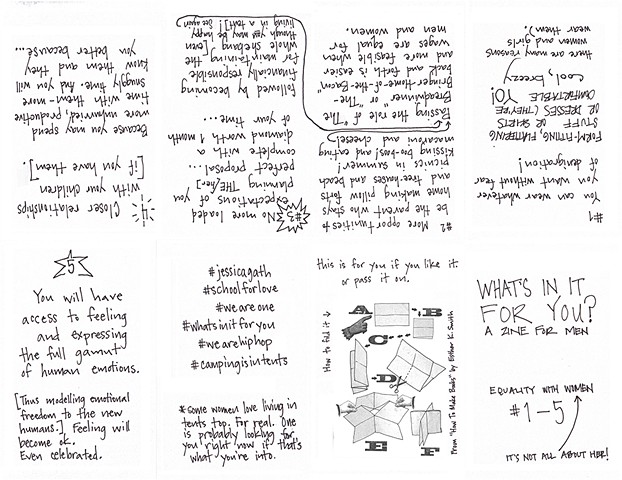 WHAT'S IN IT
FOR YOU?
A ZINE FOR MEN
EQUALITY WITH WOMEN
#1-5
IT'S NOT ALL ABOUT HER!
#1
You can wear whatever
you want without fear
of denigration!
FORM-FITTING, FLATTERING
STUFF
OR SKIRTS
OR DRESSES (THEY'RE
COMFORTABLE YO!
cool, breezy
there are many reasons
women and girls
wear them).
#2 More opportunities to
be the parent who stays
home making pillow forts
and tree-houses and beach
picnics in summer!
Kissing boo-boos! and eating
macaroni and cheese!
Passing the role of "The
Breadwinner" or "The-
Bringer-Home-of-the-Bacon"
back and forth is easier
and more feasible when
wages are equal for
men and women.
#3 No more loaded
expectations of you
planning THE
perfect proposal...
complete with a
diamond worth 1 month
of your time...
followed by becoming
financially responsible
for maintaining the
whole shebang [even
though you may be happy
living in a tent!]
#4 Closer relationships
with your children
[if you have them].
Because you may spend
more unhurried, productive
time with them-more
snuggly time. You will
know them and they
you better because...
5
You will have
access to feeling
and expressing
the full gamut
of human emotions.
[Thus modelling emotional
freedom to the new
humans.] Feeling will
become ok.
Even celebrated.
#jessicagath
#schoolforlove
#weareone
#whatsinitforyou
#wearehiphop
#campingisintents
*some women love living in
tents too. For real. One
is probably looking for
you right now if that's
what you're into.
this is for you if you like it.
or pass it on.
How to fold it ↓
A
B
C
D
E
F
From "How To Make Books" by Esther K. Smith